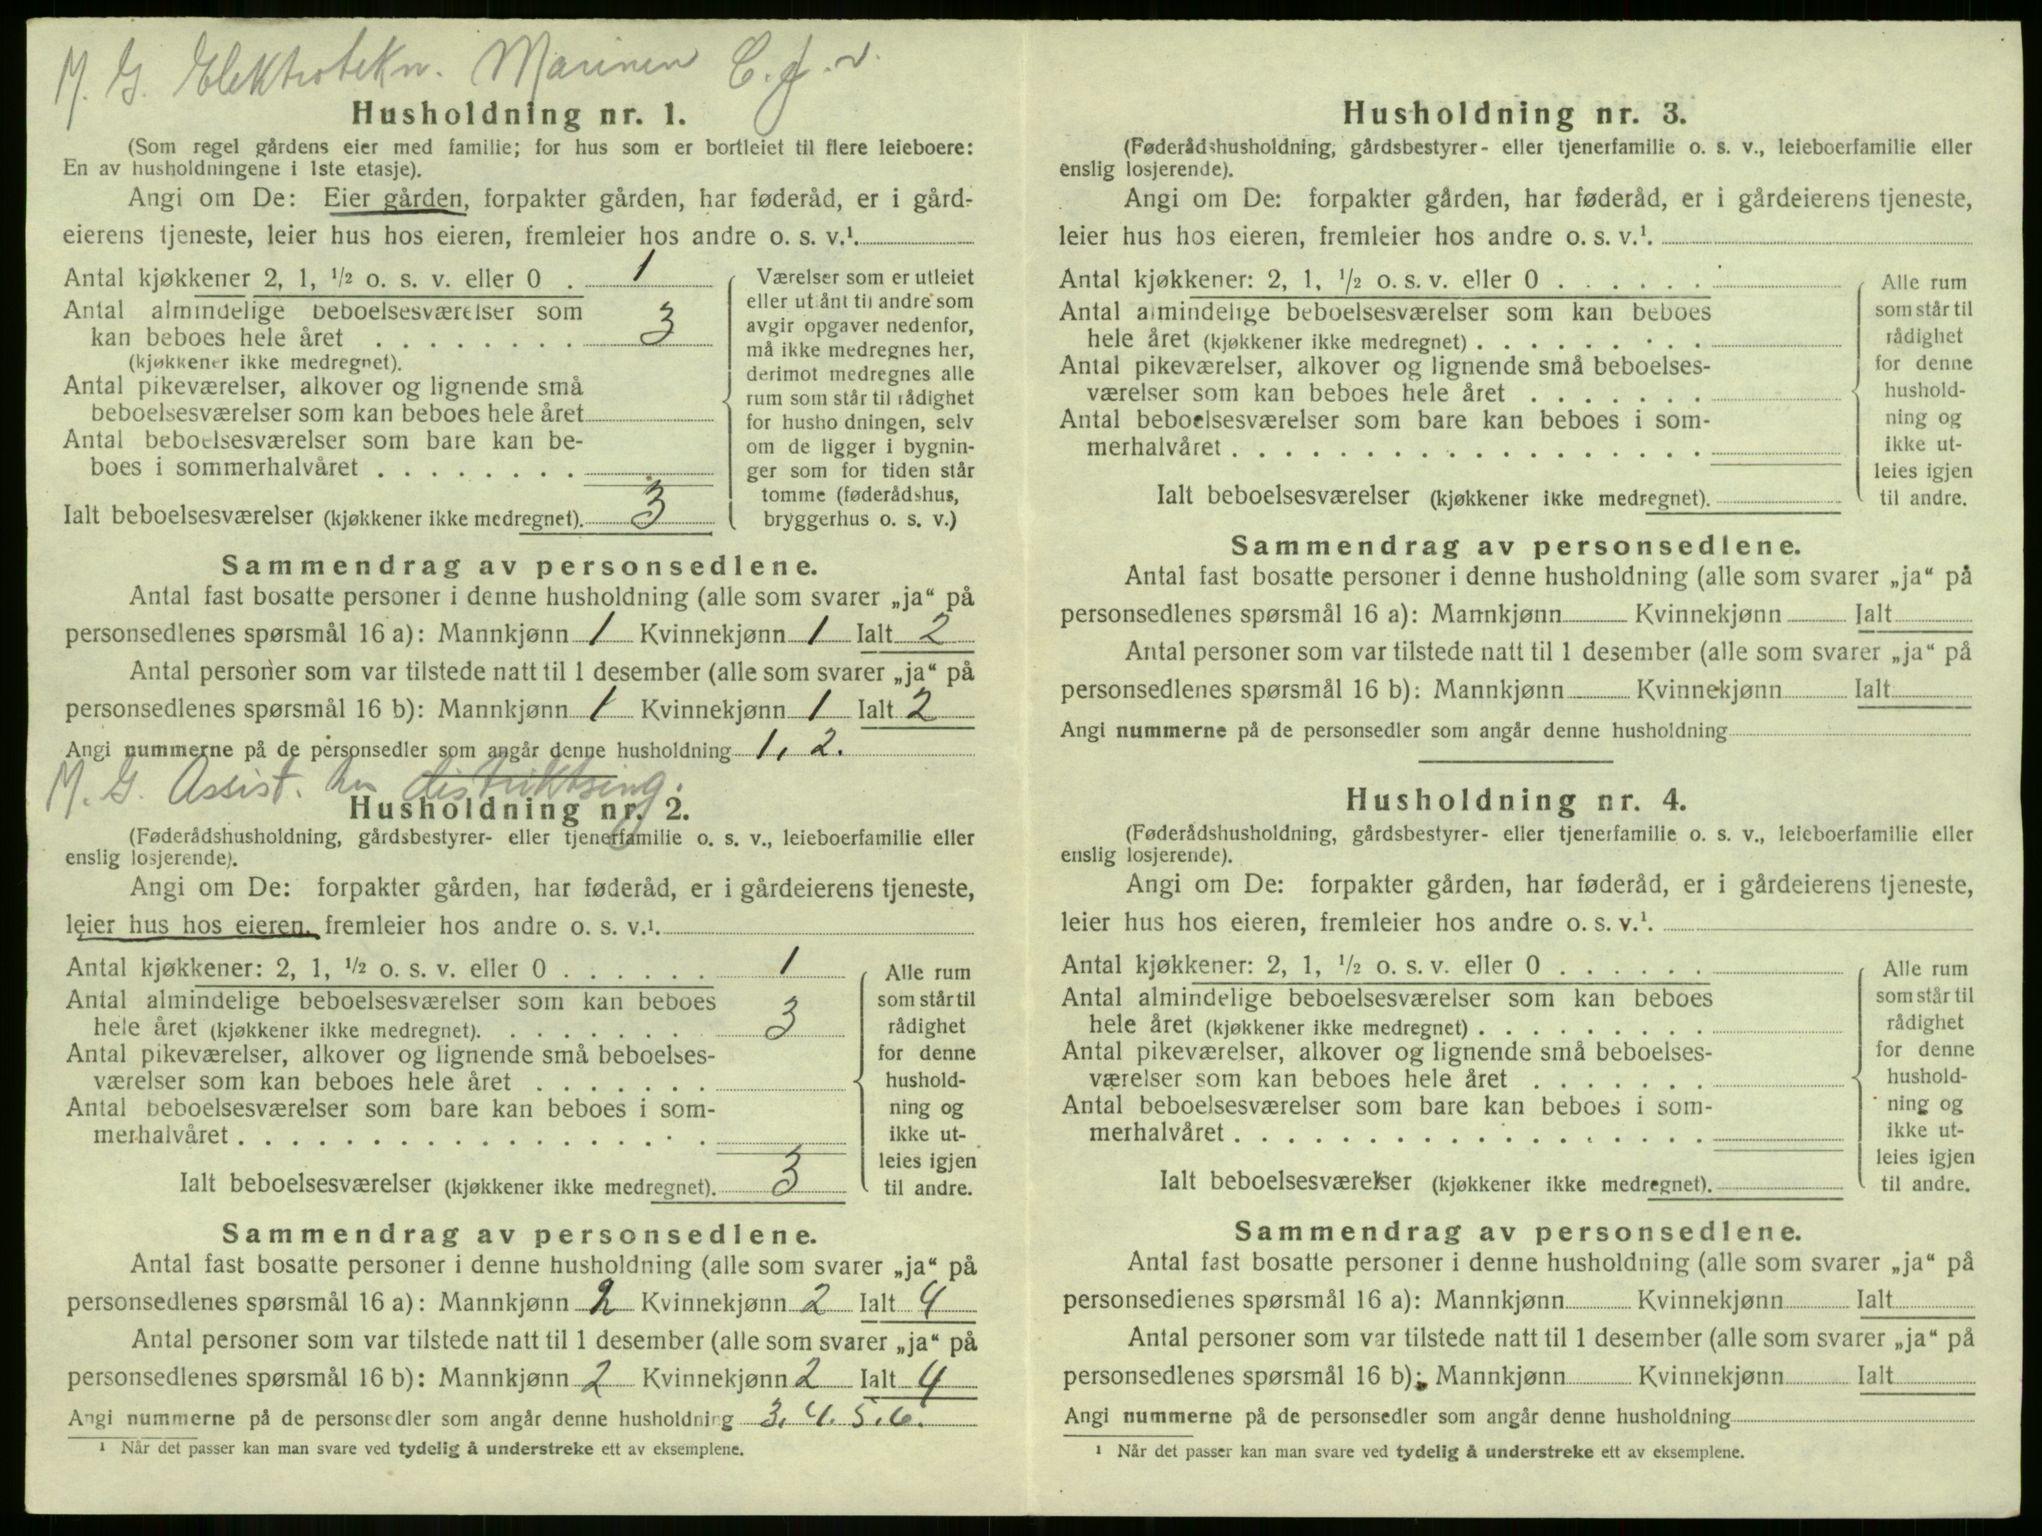 M. G. Elektrotekn. Marinen C. f. v.
Husholdning nr. 1.
(Som regel gårdens eier med familie; for hus som er bortleiet til flere leieboere:
En av husholdningene i 1ste etasje).
Angi om De: Eier gården, forpakter gården, har føderåd, er i gård-
eierens tjeneste, leier hus hos eieren, fremleier hos andre o. s. v.¹.
Antal kjøkkener 2, 1, ½ o. s. v. eller 0 . 1
Antal almindelige beboelsesværelser som
kan beboes hele året . . . . . . . . 3
(kjøkkener ikke medregnet).
Antal pikeværelser, alkover og lignende små
beboelsesværelser som kan beboes hele året
Antal beboelsesværelser som bare kan be-
boes i sommerhalvåret . . . . . . . .
Ialt beboelsesværelser (kjøkkener ikke medregnet). 3
Værelser som er utleiet
eller utlånt til andre som
avgir opgaver nedenfor,
må ikke medregnes her,
derimot medregnes alle
rum som står til rådighet
for husho dningen, selv
om de ligger i bygnin-
ger som for tiden står
tomme (føderådshus,
bryggerhus o. s. v.)
Sammendrag av personsedlene.
Antal fast bosatte personer i denne husholdning (alle som svarer „ja“ på
personsedlenes spørsmål 16 a): Mannkjønn 1 Kvinnekjønn 1 Ialt 2
Antal personer som var tilstede natt til 1 desember (alle som svarer „ja“ på
personsedlenes spørsmål 16 b): Mannkjønn 1 Kvinnekjønn 1 Ialt 2
Angi nummerne på de personsedler som angår denne husholdning 1, 2.
M. G. Assist. hos distriktsing.
Husholdning nr. 2.
(Føderådshusholdning, gårdsbestyrer- eller tjenerfamilie o. s. v., leieboerfamilie eller
enslig losjerende).
Angi om De: forpakter gården, har føderåd, er i gårdeierens tjeneste,
leier hus hos eieren, fremleier hos andre o. s. v.¹.
Antal kjøkkener: 2, 1, ½ o. s. v. eller 0 . . . . . . 1
Antal almindelige beboelsesværelser som kan beboes
hele året (kjøkkener ikke medregnet). . . . . . . . 3
Antal pikeværelser, alkover og lignende små beboelses-
værelser som kan beboes hele året . . . . . . .
Antal beboelsesværelser som bare kan beboes i som-
merhalvåret . . . . . . . . . . . . . . . . . .
Ialt beboelsesværelser (kjøkkener ikke medregnet). 3
Alle rum
som står til
rådighet
for denne
hushold-
ning og
ikke ut-
leies igjen
til andre.
Sammendrag av personsedlene.
Antal fast bosatte personer i denne husholdning (alle som svarer „ja“ på
personsedlenes spørsmål 16 a): Mannkjønn 2 Kvinnekjønn 2 Ialt 4
Antal personer som var tilstede natt til 1 desember (alle som svarer „ja“ på
personsedlenes spørsmål 16 b): Mannkjønn 2 Kvinnekjønn 2 Ialt 4
Angi nummerne på de personsedler som angår denne husholdning 3. 4. 5. 6.
¹ Når det passer kan man svare ved tydelig å understreke ett av eksemplene.
Husholdning nr. 3.
(Føderådshusholdning, gårdsbestyrer- eller tjenerfamilie o. s. v., leieboerfamilie eller
enslig losjerende).
Angi om De: forpakter gården, har føderåd, er i gårdeierens tjeneste,
leier hus hos eieren, fremleier hos andre o. s. v.¹.
Antal kjøkkener: 2, 1, ½ o. s. v. eller 0 . . . . . .
Antal almindelige beboelsesværelser som kan beboes
hele året (kjøkkener ikke medregnet) . . . . . . . . .
Antal pikeværelser, alkover og lignende små beboelses-
værelser som kan beboes hele året . . . . . . .
Antal beboelsesværelser som bare kan beboes i som-
merhalvåret . . . . . . . . . . . . . . . . . .
Ialt beboelsesværelser (kjøkkener ikke medregnet).
Alle rum
som står til
rådighet
for denne
hushold-
ning og
ikke ut-
leies igjen
til andre.
Sammendrag av personsedlene.
Antal fast bosatte personer i denne husholdning (alle som svarer „ja“ på
personsedlenes spørsmål 16 a): Mannkjønn Kvinnekjønn Ialt
Antal personer som var tilstede natt til 1 desember (alle som svarer „ja“ på
personsedlenes spørsmål 16 b): Mannkjønn Kvinnekjønn Ialt
Angi nummerne på de personsedler som angår denne husholdning
Husholdning nr. 4.
(Føderådshusholdning, gårdsbestyrer- eller tjenerfamilie o. s. v., leieboerfamilie eller
enslig losjerende).
Angi om De: forpakter gården, har føderåd, er i gårdeierens tjeneste,
leier hus hos eieren, fremleier hos andre o. s. v.¹.
Antal kjøkkener: 2, 1, ½ o. s. v. eller 0 . . . . . .
Antal almindelige beboelsesværelser som kan beboes
hele året (kjøkkener ikke medregnet) . . . . . . . . .
Antal pikeværelser, alkover og lignende små beboelses-
værelser som kan beboes hele året . . . . . . .
Antal beboelsesværelser som bare kan beboes i som-
merhalvåret . . . . . . . . . . . . . . . . . .
Ialt beboelsesværelser (kjøkkener ikke medregnet).
Alle rum
som står til
rådighet
for denne
hushold-
ning og
ikke ut-
leies igjen
til andre.
Sammendrag av personsedlene.
Antal fast bosatte personer i denne husholdning (alle som svarer „ja“ på
personsedlenes spørsmål 16 a): Mannkjønn Kvinnekjønn Ialt
Antal personer som var tilstede natt til 1 desember (alle som svarer „ja“ på
personsedlenes spørsmål 16 b): Mannkjønn Kvinnekjønn Ialt
Angi nummerne på de personsedler som angår denne husholdning
¹ Når det passer kan man svare ved tydelig å understreke ett av eksemplene.